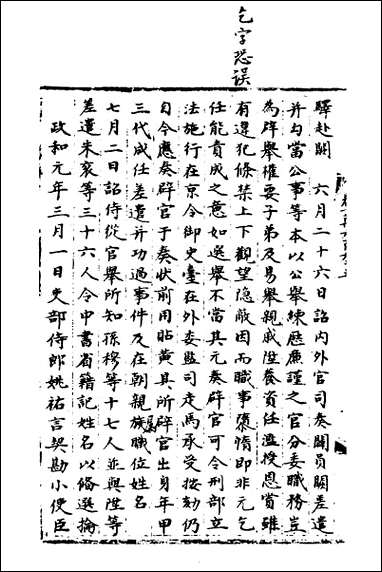 乞字恐誤
驛赴闕　六月二十六日詔内外官司奏闢員闕差遣
并勾當公事等本以公舉練歷廉謹之官分委職務豈
為辟舉權要子弟及易舉親戚陞養資任濫授恩賞雖
有違犯條禁上下觀望隱蔽因而職事隳惰即非元乞
任能責成之意如選舉不當其元奏辟官可令刑部立
法施行在京令御史臺在外委監司走馬承受按劾仍
自今應奏辟官于奏狀前用貼黄具所辟官出身年甲
三代成任差遣并功過事件及在朝親族職位姓名
七月二日詔侍從官舉所知孫穆等十七人並與陞等
差遣朱衮等三十六人令中書省籍記姓名以備選掄
政和元年三月一日吏部侍郎姚祐言契勘小使臣